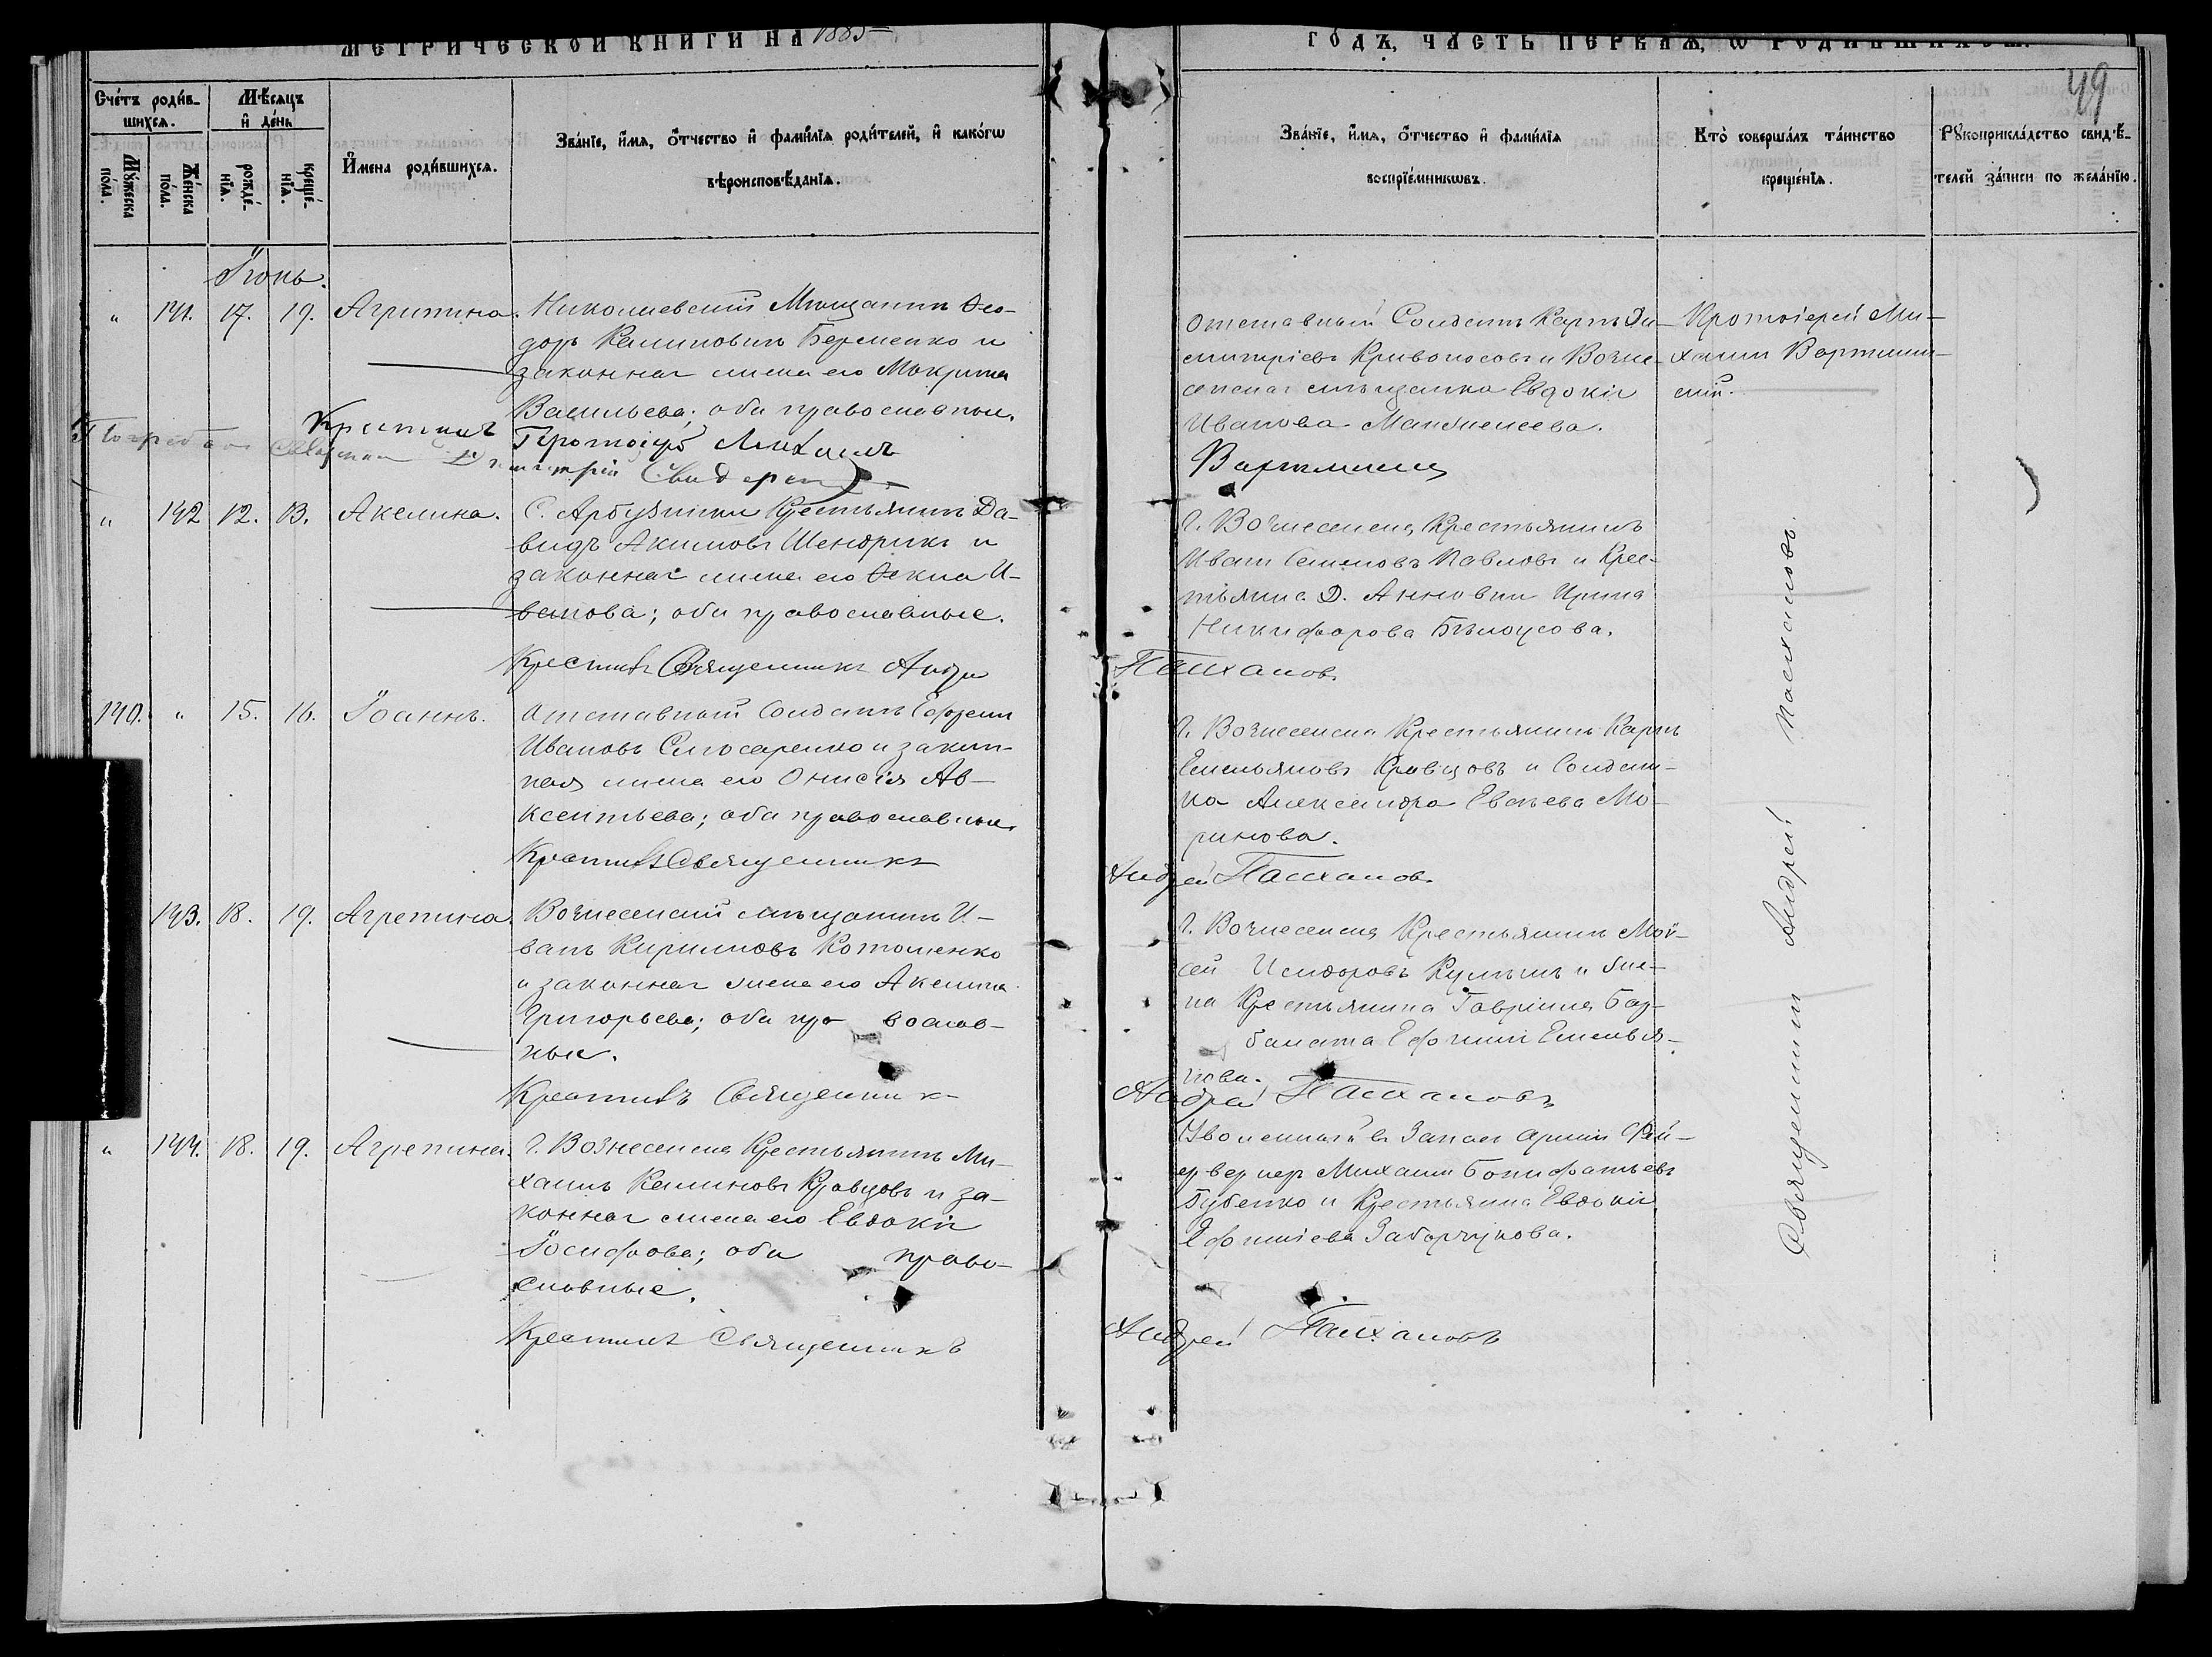 МЕТРИЧЕСКОЙ КНИГИ НА 1885
ГОДЪ, ЧАСТЬ ПЕРВАЯ, Ѡ РОДИВШИХСЯ.
49
Счетъ родив-
шихся.
Мѣсяцъ
и день
Мужеска
пола.
Женска
пола.
рожде-
нія.
креще-
нія.
Имена родившихся.
Званіе, имя, отчество и фамилія родителей, и какогѡ
вѣроисповѣданія.
Званіе, имя, отчество и фамилія
воспріемникѡвъ.
Кто совершалъ таинство
крещенія.
Рукоприкладство свидѣ-
телей записи по желанію.
Іюнь.
" 141. 17. 19. Агрипина.
Николаевскій Мѣщанинъ Ѳео-
доръ Калиновъ и
законная жена его Макрина
Васильева; оба православные.
Крестилъ
Протоіерей Михаилъ
Димитрій
Отставный Солдатъ Карпъ Ди-
митріевъ Кривоносовъ и Возне-
сенская мѣщанка Евдокія
Иванова
Протоіерей Ми-
хаилъ
скій.
" 142 12. 13. Акелина.
С. Арбузинки Крестьянинъ Да-
видъ Акимовъ Шендрикъ и
законная жена его Ѳекла И-
ванова; оба православные.
Крестилъ Священникъ Андрей
Г. Вознесенска Крестьянинъ
Иванъ Семеновъ Павловъ и Крес-
тьянка Д. Анновки Ирина
Никифорова Бѣлоусова.
Пасхаловъ
140. " 15. 16. Іоаннъ.
Отставный Солдатъ Ефремъ
Ивановъ Слюсаренко и закон-
ная жена его Онисія Ав-
ксентьева; оба православные.
Крестилъ Священникъ
Г. Вознесенска Крестьянинъ Карпъ
Емельяновъ Кравцовъ и Солдат-
ка Александра Евсѣева Мо-
ринова.
Андрей Пасхаловъ
143. 18. 19. Агрепина.
Вознесенскій мѣщанинъ И-
ванъ Кириловъ Котоленко
и законная жена его Акелина
Григорьева; оба православ-
ные.
Крестилъ Священникъ
Г. Вознесенска Крестьянинъ Мой-
сей Исидоровъ и же-
на Крестьянина Гавріила Бар-
Ефимія Емелья-
нова.
Андрей Пасхаловъ
" 144. 18. 19. Агрепина.
Г. Вознесенска Крестьянинъ Ми-
хаилъ Калиновъ Кравцовъ и за-
конная жена его Евдокія
Іосифова; оба право-
славные.
Крестилъ Священникъ
Уволенный въ Запасъ арміи Фей-
ерверкеръ Михаилъ Бонифатьевъ
Бубенко и Крестьянка Евдокія
Ефиміева
Андрей Пасхаловъ
Священникъ Андрей Пасхаловъ.